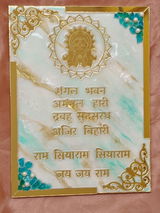 मंगल भवन
अमंगल हारी
द्रवहु सुदसरथ
अजिर बिहारी
राम सियाराम सियाराम
जय जय राम